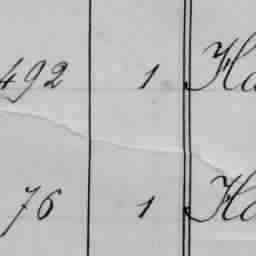 492 1 Ha
76 1 Ha